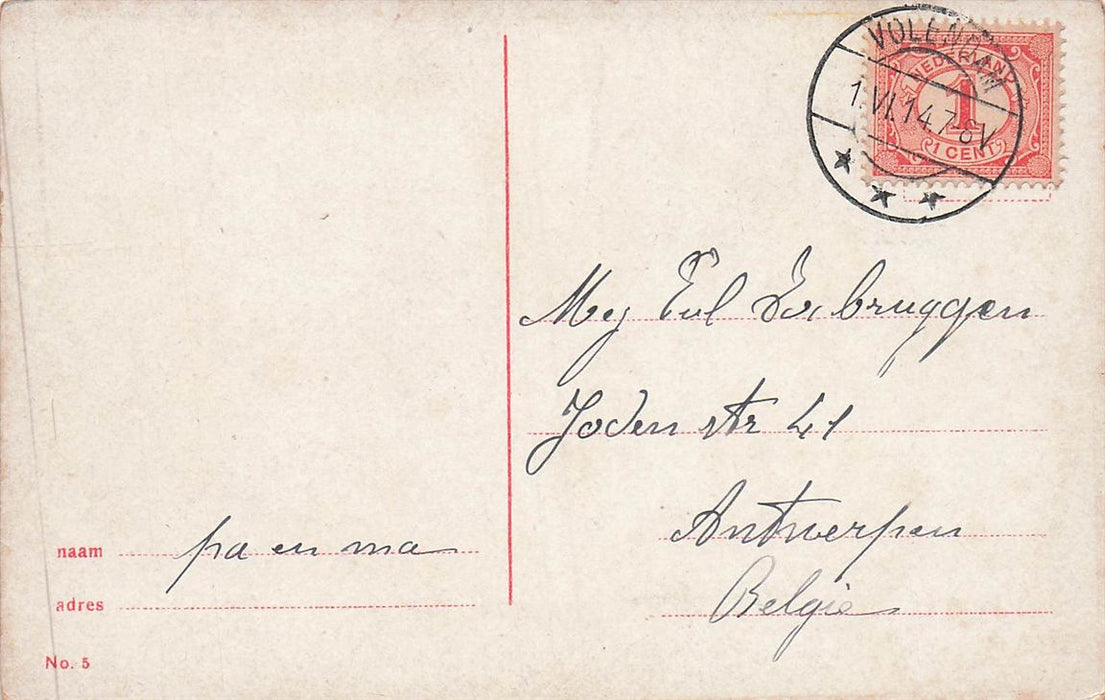 VOLENDAM
1.VI.14.7-8V
NEDERLAND
1
1 CENT
Mej bruggen
Joden str 41
Antwerpen
Belgie
naam pa en ma
adres
No. 5